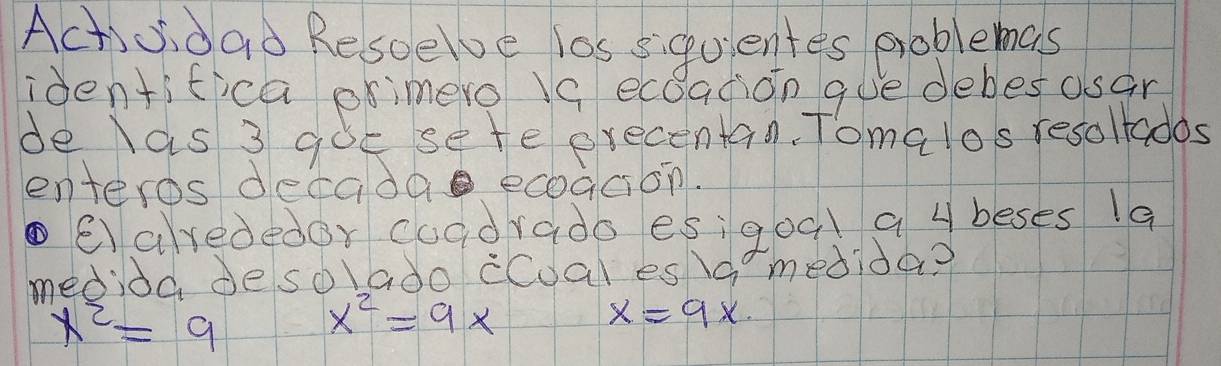 Actividad Resoelve los siguientes problemas
identifica primero la ecoación que debes osar
de las 3 que se te precentan. Toma los resoltados
enteros decada ecoación.
El alrededor coadrado es igoal a 4 beses la
medida de so lado ¿Coal es la medida?
x² = 9 x² = 9x x = 9x.